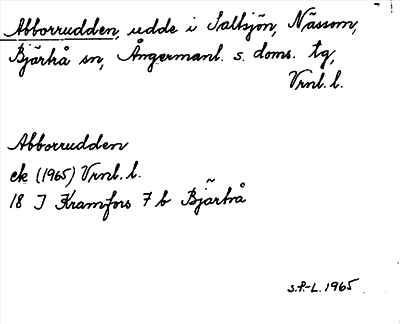 Abborrudden, udde i Saltsjön, Nässom,
Bjärtrå sn, Ångermanl. s. doms. tg,
Vrnl. l.
Abborrudden
ek (1965) Vrnl. l.
18 J Kramfors 7 b Bjärtrå
S.P-L. 1965